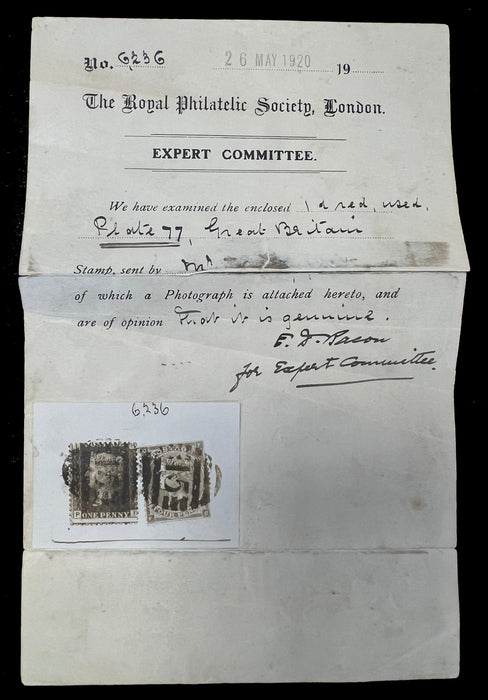 No. 6236 26 MAY 1920 19
The Royal Philatelic Society, London.
EXPERT COMMITTEE.
We have examined the enclosed 1d red, used,
Plate 77, Great Britain
Stamp, sent by Mr
of which a Photograph is attached hereto, and
are of opinion that it is genuine.
E. D. Bacon
for Expert Committee.
6236
P ONE PENNY